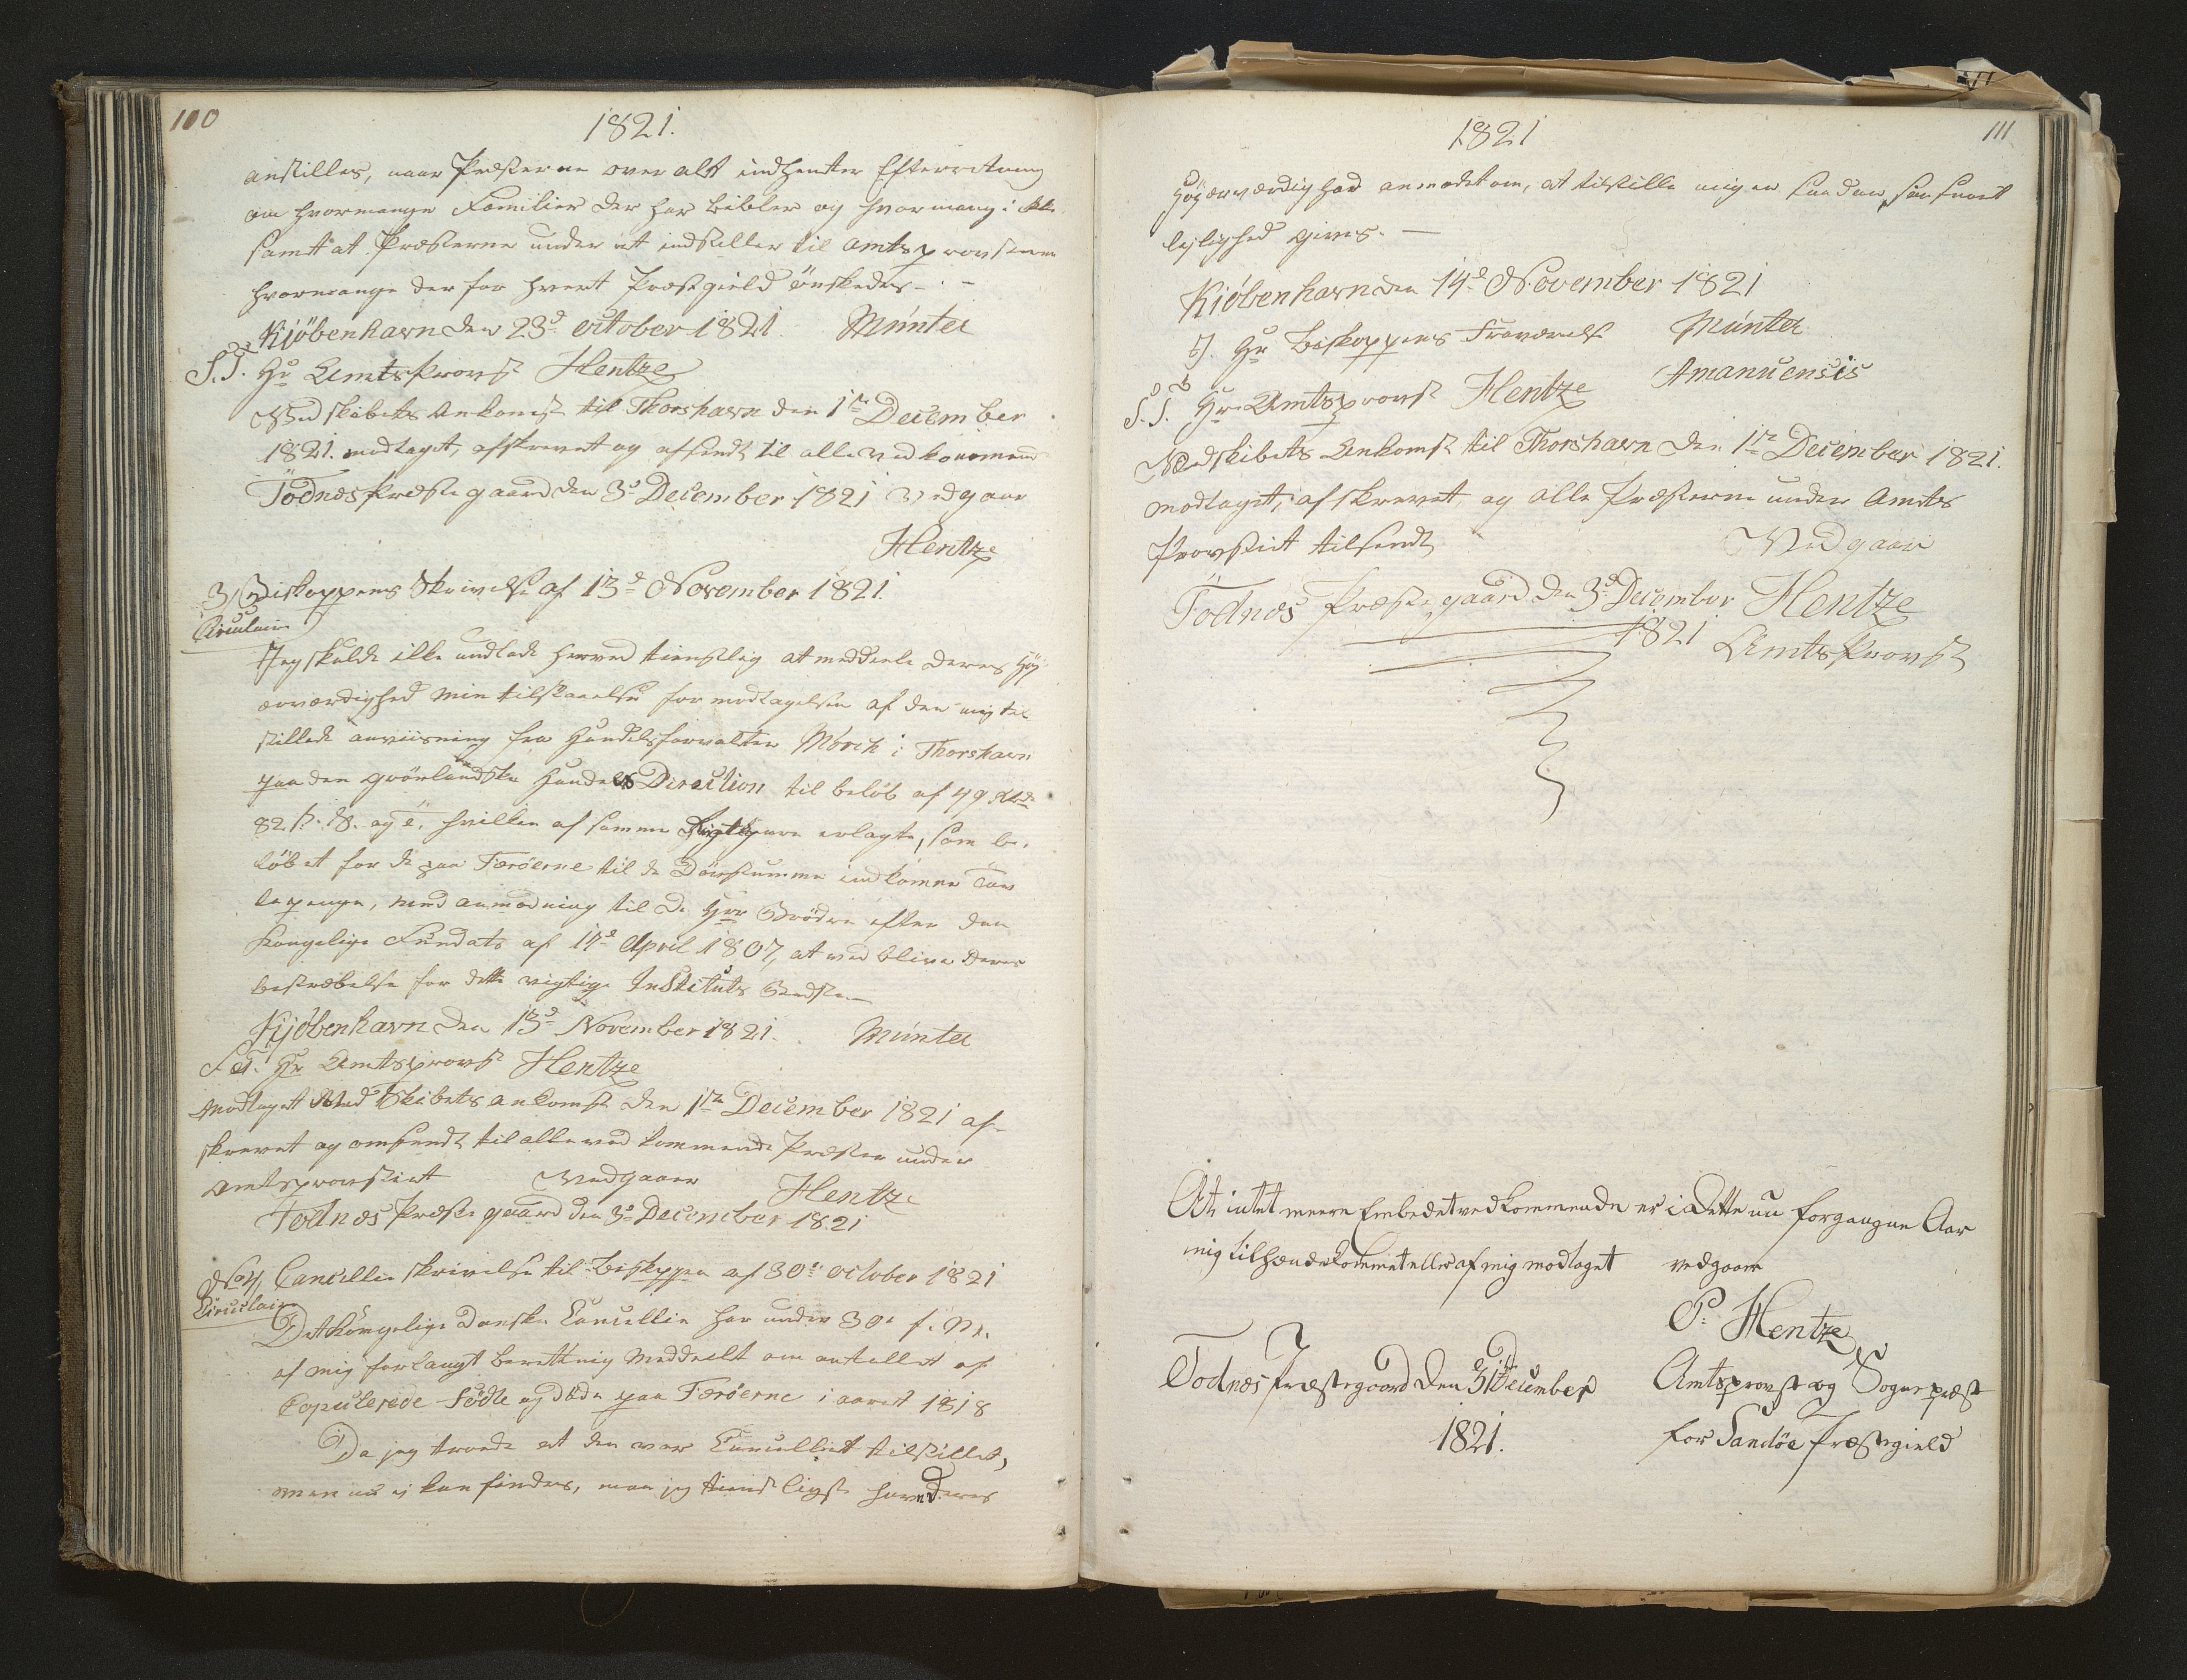 100
1821.
anstilles, naar Præsterne over alt indhenter Efterretning
om hvormange Familier der har bibler og hvormang i
samt at Præsterne under et indstiller til amtsprovsten
hvormange der for hvert Præstgield önskedes. -
Kjöbenhavn den 23d october 1821. Münter
S. T. Hr Amtsprovst Hentze
Med skibets ankomst til Thorshavn den 1te December
1821. modtaget, afskrevet og afsendt til alle vedkommende
Todnæs Præstegaard den 3d December 1821 Vedgaar
Hentze
3, Biskoppens Skrivelse af 13d November 1821.
Circulaire
Jeg skulde ikke undlade herved tienstlig at meddeele Deres Höy
ærværdighed min tilstaaelse for modtagelsen af den mig til
stillede anviisning fra Handelsforvalter Mörch i Thorshavn
paa den grönlandske Handels Direction til belöb af 49 Rbd
82 s. S. og T. hvilken af samme rigtig er erlagt, som be-
löbet for de paa Færöerne til de Dövstumme indkomne Tav
lepenge, med anmodning til De Hrr Brödre efter den
Kongelige Fundats af 17d April 1807, at vedblive Deres
bestræbelse for dette vigtige Instituts Bedste
Kjöbenhavn den 13d November 1821. Münter
S. T. Hr Amtsprovst Hentze
Modtaget Med Skibets ankomst den 1te December 1821 af-
skrevet og omsendt til alle vedkommende Præster under
Amtsprovstiet Vedgaaer Hentze
Todnæs Præstegaard den 3d December 1821
No 4, Cancellie skrivelse til Biskoppen af 30te october 1821
Circulaire
Det Kongelige Danske Cancellie har under 30te f. M.
af mig forlangt beretning Meddeelt om antallet af
Copulerede födte og döde paa Færöerne i aaret 1818
Da jeg troede at den var Cancelliet tilstillet,
men nu ej kan findes, maa jeg tienstligst herved Deres
111
1821
Höyærværdighed anmodet om, at tilstille mig en saadan, saasnart
leylighed gives. -
Kjöbenhavn den 14d November 1821
J. Hr Biskoppens Fraværelse Münter
Amanuensis
S. T. Hr Amtsprovst Hentze
Med skibets Ankomst til Thorshavn den 1te December 1821.
modtaget, afskrevet, og alle Præsterne under Amts
Provstiet tilsendt Vedgaar
Todnæs Præstegaard den 3d December Hentze
1821 Amtsprovst
At intet meere Embedet vedkommende er i Dette nu forgangne Aar
mig tilhændekommet eller af mig modtaget vedgaaer
P. Hentze
Todnæs Præstegaard den 31 December Amtsprovst og Sognepræst
1821. for Sandöe Præstegield